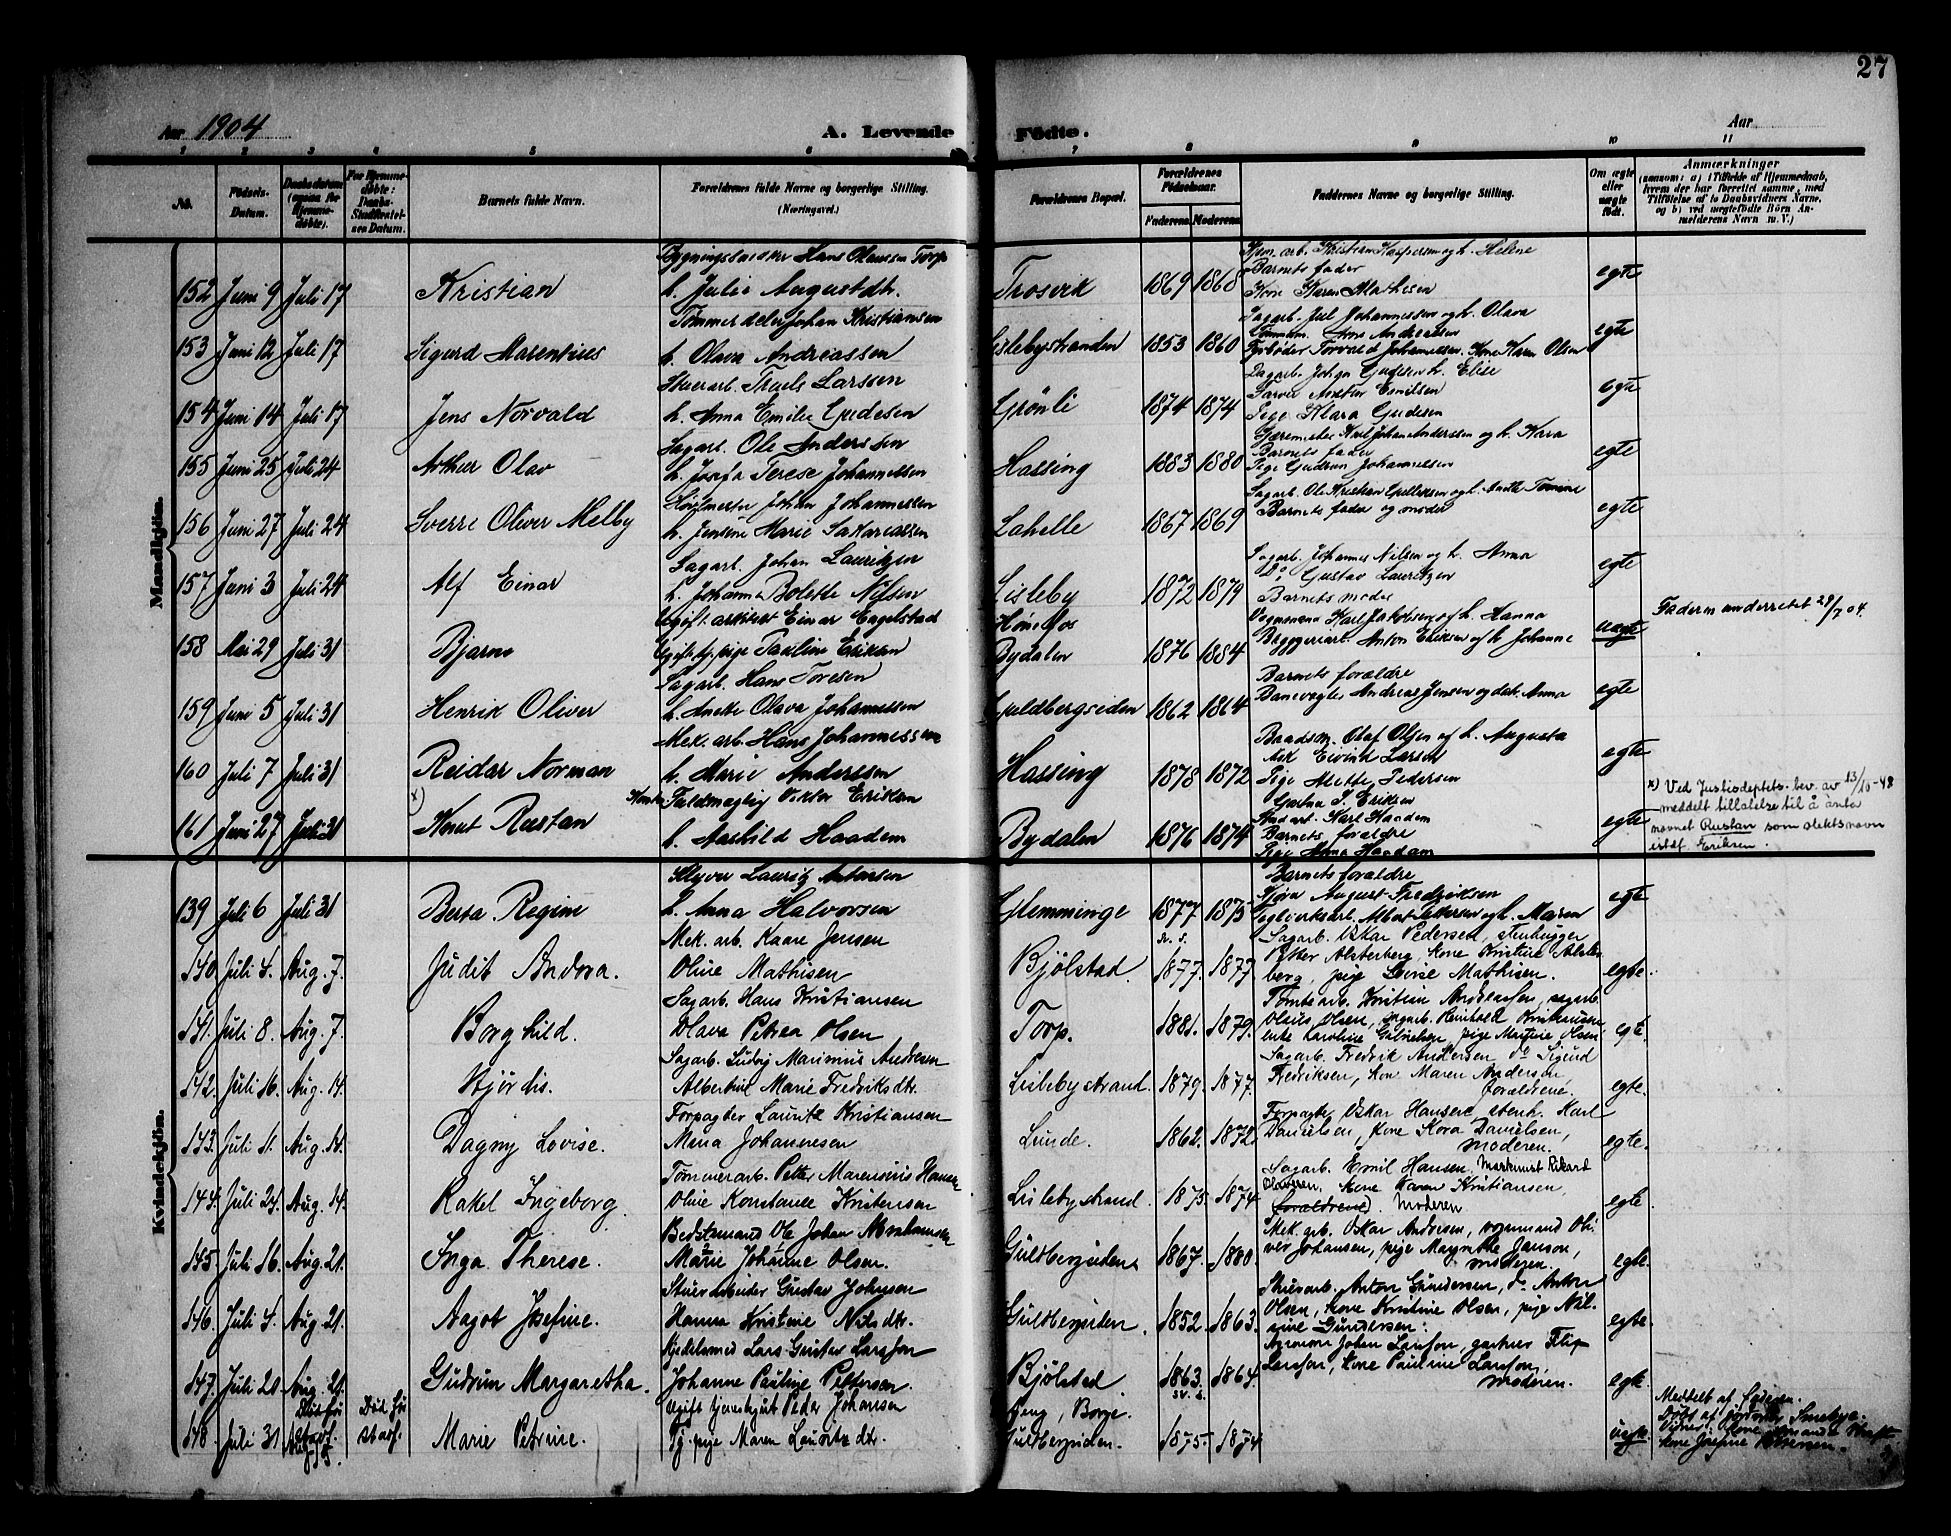 27
Aar 1904
A. Levende Fødte.
Aar
1 2 3 4 5 6 7 8 9 10 11
No.
Fødsels-Datum.
Daabsdatum (ogsaa for Hjemmedøbte).
For Hjemmedøbte: Daabs-Stadfæstelses Datum.
Barnets fulde Navn.
Forældrenes fulde Navne og borgerlige Stilling. (Næringsvei.)
Forældrenes Bopæl.
Forældrenes Fødselsaar.
Faderens Moderens
Faddernes Navne og borgerlige Stilling.
Om ægte eller uægte født.
Anmærkninger
(saasom: a) i Tilfælde af Hjemmedaab, hvem der har forrettet samme, med Tilføielse af to Daabsvidners Navne, og b) ved uægtefødte Børn Anmelderens Navn m. V.)
Mandkjøn.
152 Juni 9 Juli 17 Kristian
Hans Olaussen Torp
h. Julie Augustdtr.
Trosvik 1869 1868
Kristian Kaspersen og h. Helene
Barnets fader
Kone Karen Mathisen
egte
153 Juni 12 Juli 17 Sigurd Marentius
Tømmerdeler Johan Kristiansen
h. Olava Andreassen
Lislebystranden 1853 1860
Sagarb. Jul Johannessen og h. Olava
Fyrbøder Torvald Johannessen. Kone Karen Olsen
egte
154 Juni 14 Juli 17 Jens Norvald
Stuerarb. Truels Larssen
h. Anna Emilie Gudesen
Grønli 1874 1874
Sagarb. Johan Gudesen h. Elise
Farver Anton Emilsen
Pige Klara Gudesen
egte
155 Juni 25 Juli 24 Arthur Olav
Sagarb. Ole Anderssen
h. Josefa Terese Johannessen
Hassing 1883 1880
Karl Johan Anderssen og h. Kara
Barnets fader
Pige Gudrun Johannessen
egte
156 Juni 27 Juli 24 Sverre Oliver Melby
Johan Johannessen
h. Jensine Marie Sakariassen
Lahelle 1867 1869
Sagarb. Ole Kristian Gulliksen og h. Anette Tomine
Barnets fader og moder
egte
157 Juni 3 Juli 24 Alf Einar
Sagarb. Johan Lauritzen
h. Johanne Bolette Nilsen
Lisleby 1872 1879
Sagarb. Johannes Nilsen og h. Anna
Do Gustav Lauritzen
Barnets moder
egte
158 Mai 29 Juli 31 Bjarne
Ugift arkitekt Einar Engelstad
Ugift tj. pige Pauline Eriksen
Hønefos
Bydalen 1876 1884
Vognmand Karl Jakobsen og h. Hanna
Byggeriarb. Anton Eriksen og h. Johanne
uegte
Faderen underrettet 29/7 04.
159 Juni 5 Juli 31 Henrik Oliver
Sagarb. Hans Toresen
h. Anette Olava Johannessen
Guldbergsiden 1862 1864
Barnets forældre
Banevagter Andreas Jensen og dat. Anna
egte
160 Juli 7 Juli 31 Reidar Norman
Mek. arb. Hans Johannessen
h. Marie Anderssen
Hassing 1878 1872
Baadsm. Olaf Olsen og h. Augusta
Eivind Larsen
Pige Mette Pedersen
egte
161 Juni 27 Juli 31 x) Knut Rustan
Fuldmægtig Viktor Eriksen
h. Aashild Haadem
Bydalen 1876 1874
P. Eriksen
Karl Haadem
Barnets forældre
Pige Anna Haadem
egte
x) Ved Justisdeptets bev. av 13/10-48
meddelt tillatelse til å anta
navnet Rustan som slektsnavn
istdf. Eriksen.
Kvindekjøn.
139 Juli 6 Juli 31 Berta Regine
Slipver Lauritz Antonsen
h. Anna Halvorsen
Glemminge 1877 1875
Barnets forældre
August Fredriksen
Albert Pettersen og h. Maren
egte
140 Juli 4. Aug. 7. Judit Andora.
Mek. arb. Kaare Jensen
Oline Mathisen
Bjølstad. 1877. 1877.
Sagarb. Oskar Pedersen, stenhugger
Petter Alsterberg, kone Kristine Alsterberg, pige Lovise Mathisen.
egte.
141. Juli 8. Aug. 7. Borghild.
Sagarb. Hans Kristiansen
Olava Petrea Olsen
Torp. 1881. 1879.
Tomtearb. Kristian Andreassen, sagarb.
Olaus Olsen, sagarb. Reinhold Kristiansen,
enke Karoline, pige Martine Olsen
egte.
142. Juli 16. Aug. 14. Hjørdis.
Sagarb. Ludvig Marinius Andresen
Albertine Marie Fredriksdtr.
Lislebystrand. 1879. 1877.
Sagarb. Fredrik Andersen, do Sigurd
Fredriksen, kone Maren Andersen
forældrene.
egte.
143. Juli 11. Aug. 14. Dagny Lovise.
Forpagter Lauritz Kristiansen
Mina Johannesen
Lunde. 1862. 1872.
Forpagter Oskar Hansen, stenh. Karl
Danielsen, kone Kora Danielsen,
moderen.
egte.
144. Juli 24. Aug. 14. Rakel Ingeborg.
Tømmerarb. Petter Marensius Hansen
Oline Konstanse Kristensen
Lislebystrand. 1875. 1874.
Sagarb. Emil Hansen, Rikard
Olavesen, kone Karen Kristiansen,
(forældrene). Moderen
egte.
145. Juli 16. Aug. 21. Inga Therese.
Bedstemand Ole Johan Abrahamsen
Marie Johanne Olsen.
Guldbergsiden 1867. 1880.
Mek. arb. Oskar Andresen, vognmand Oliver Johansen, pige Margrethe Janson,
moderen.
egte.
146. Juli 4. Aug. 21. Aagot Josefine.
Stuerarbeider Gustav Johnsen
Hanna Kristine Nilsdtr.
Guldbergsiden. 1852. 1863.
Stuerarb. Anton Gundersen, do Anton
Olsen, kone Kristine Olsen, pige Nilsine Gundersen.
egte.
147. Juli 21. Aug. 21. Gudrun Margaretha.
Kjedelsmed Lars Gustav Larsson
Johanne Pauline Pettersen.
Bjølstad 1863. 1864.
Johan Larsson, gartner Filip
Larsson, kone Pauline Larsson,
moderen.
egte.
148. Juli 31. Død før Marie Petrine.
Ugift tjenestegut Peder Johansen
Tj. pige Maren Lauritzdtr.
Eng, Borge.
Guldbergsiden. 1875. 1874.
uegte.
kone Josefine Petersen.